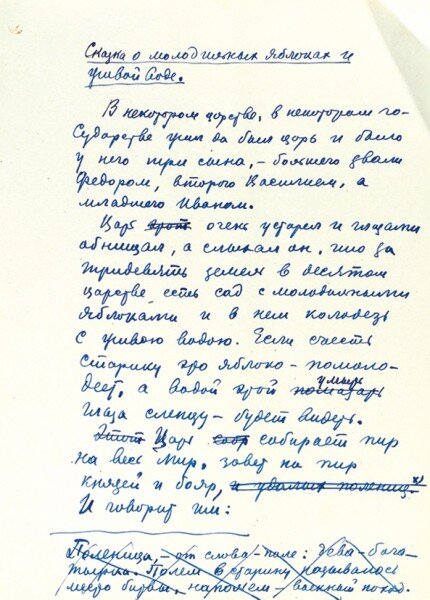 Сказка о молодильных яблоках и
живой воде.
В некотором царстве, в некотором го-
сударстве жил да был царь и было
у него три сына, – большего звали
Федором, второго Василием, а
младшего Иваном.
Царь очень устарел и глазами
обнищал, а слыхал он, что за
тридевять земель в десятом
царстве есть сад с молодильными
яблоками и в нем колодезь
с живою водою. Если съесть
старику это яблоко – помоло-
деет, а водой этой умыть
глаза слепцу – будет видеть.
Этот Царь собирает пир
на весь мир, зовет на пир
князей и бояр, и удалых полениц. х)
И говорит им:
Поленица, – от слова – поле: дева – бога-
тырша. Полем в старину называлось
место битвы, наполем – военный поход.